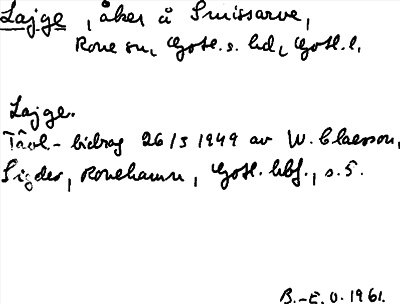 Lajge, åker å Smissarve,
Rone sn, Gotl. s. hd, Gotl. l.
Lajge.
Tävl-bidrag 26/3 1949 av W. Claesson,
Sigdes, Ronehamn, Gotl. hbf., s. 5.
B.-E. O. 1961.